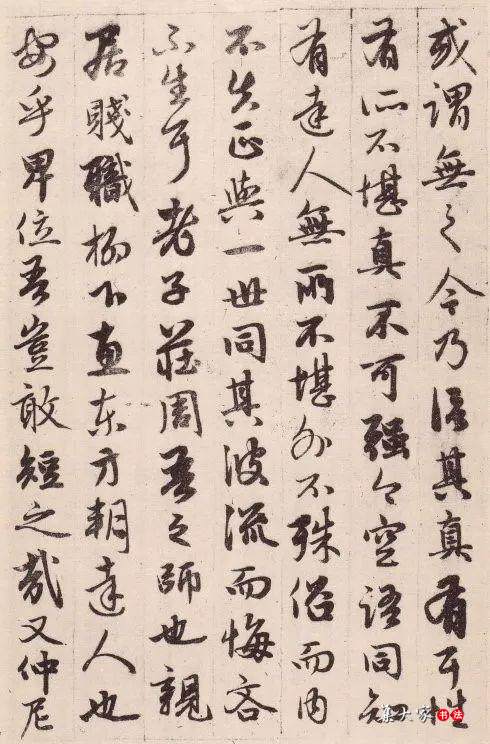 或谓無之今乃信其真有耳性
有所不堪真不可强今空語同知
有達人無所不堪外不殊俗而内
不失正與一世同其波流而悔吝
不生耳老子莊周吾之師也親
居賤職柳下惠東方朔達人也
安乎卑位吾豈敢短之哉又仲尼
集大家书法